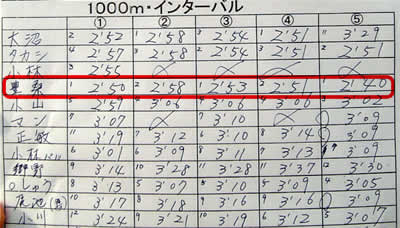 1000m・インターバル
① ② ③ ④ ⑤
大沼 2 2'52 1 2'58 3 2'54 1 2'51 11 3'29
タカシ 4 2'57 2'58 2'54 2'51 2 2'51
小林 3 2'55
1 2'50 2 2'58 1 2'53 2 2'51 1 2'40
5 2'59 4 3'06 4 3'06 3'02
マン 7 3'07 7 3'10 3'09
正敏 11 3'19 7 3'12 10 3'10 8 3'14 3'09
小林 6 3'01 3'09 3'11 3'13 3'09
9 3'14 10 3'28 11 3'28 11 3'37 12 3'30
しゅう 8 3'13 5 3'07 8 3'10 5 3'09 4 3'05
10 3'17 8 3'18 9 3'16 3'13 3'09
小川 12 3'24 9 3'21 9 3'19 6 3'12 5 3'07